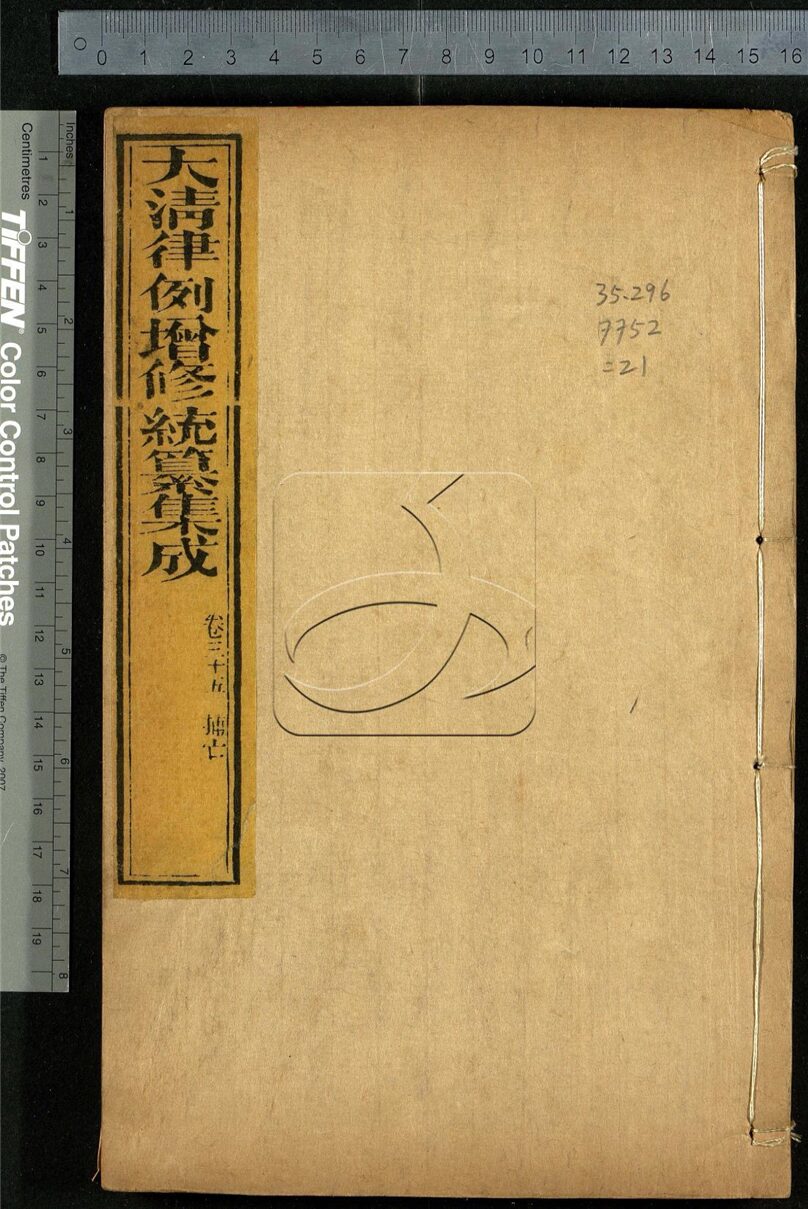 0 1 2 3 4 5 6 7 8 9 10 11 12 13 14 15 16
大清律例增修統纂集成
卷三十五 捕亡
35.296
7752
=21
Inches
1 2 3 4 5 6 7 8
Centimetres
1 2 3 4 5 6 7 8 9 10 11 12 13 14 15 16 17 18 19
TIFFEN® Color Control Patches
© The Tiffen Company, 2007